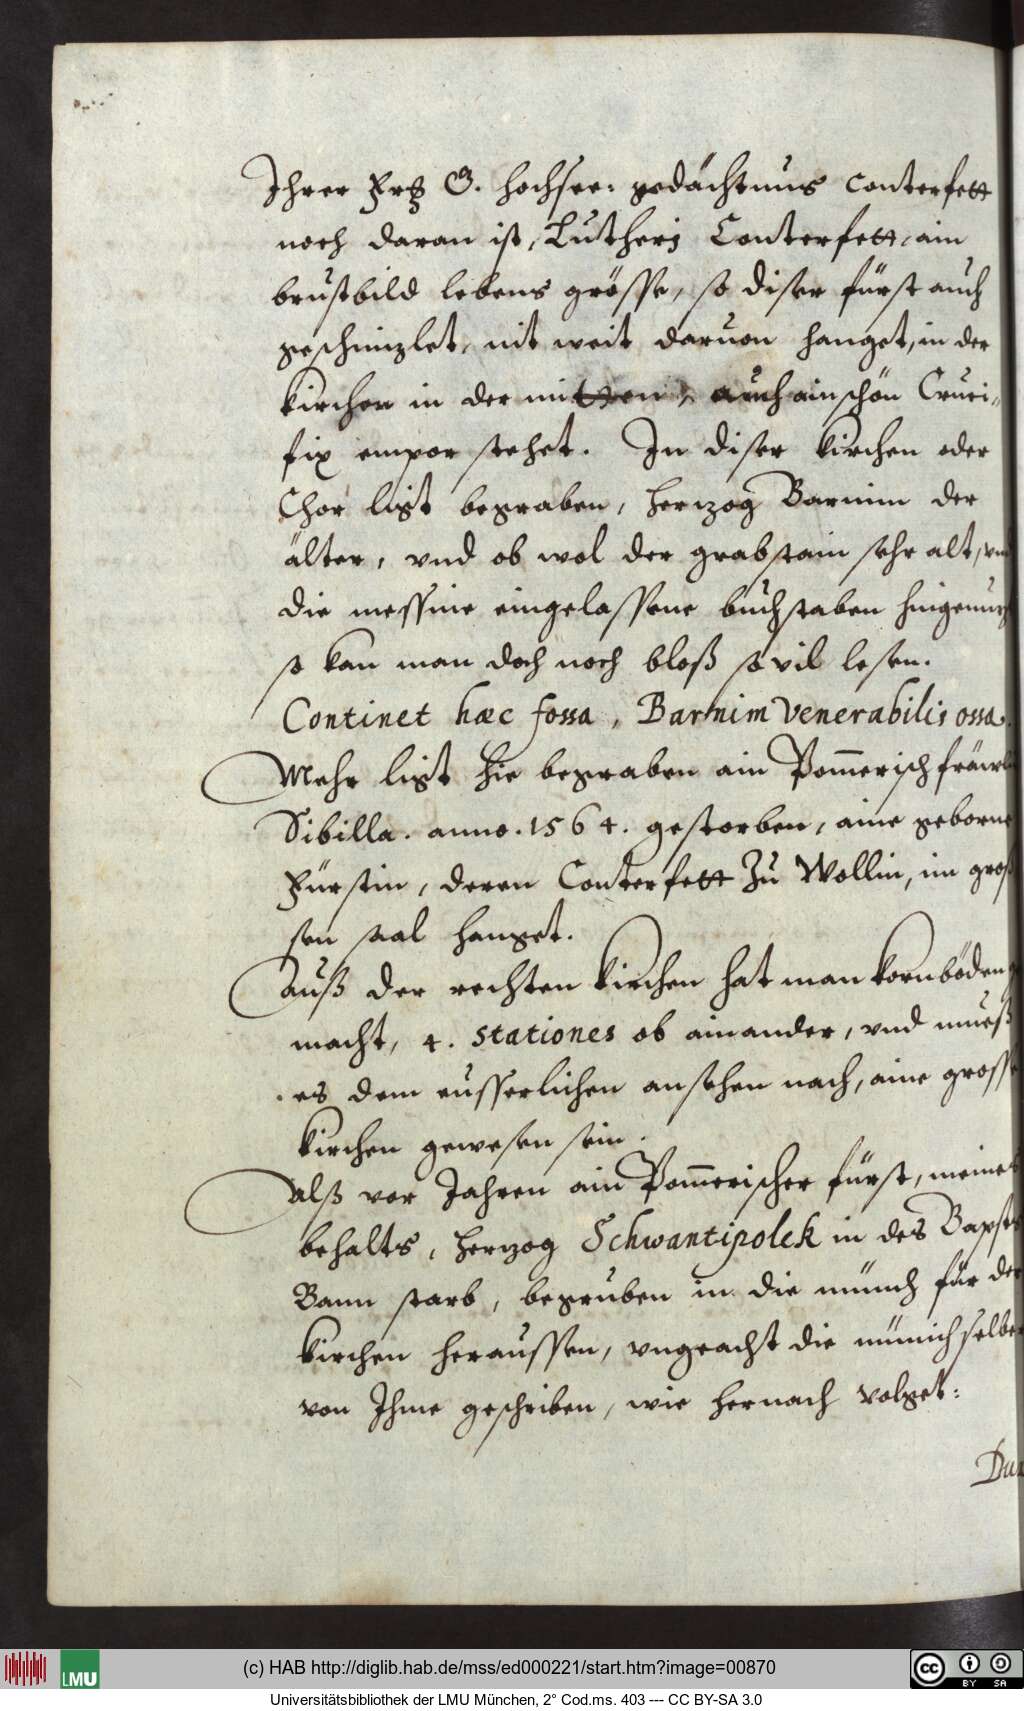 Ihrer Frg G. hochsee: gedächtnus conterfett
noch daran ist, Lutherj Conterfett, ain
brustbild lebens grösse, so diser fürst auch
geschnizlet, nit weit daruon hanget, in der
kirchen in der mitten, auch ain schön Cruci=
fix empor stehet. In diser kirchen oder
Chor ligt begraben, herzog Barnim der
älter, vnd ob wol der grabstain sehr alt, vnd
die messine eingelassene buchstaben
so kan man doch noch bloß so vil lesen.
Continet hæc fossa, Barnim Venerabilis ossa.
Mehr ligt hie begraben ain Pom̄erisch
Sibilla. anno. 1564. gestorben, aine geborne
Fürstin, deren Conterfett Zu Wollin, im gros
sen saal hanget.
Auß der rechten kirchen hat man kornböden
macht, 4. stationes ob ainander, vnd mueß
es dem eusserlichen ansehen nach, aine grosse
kirchen gewesen sein.
Alß vor Jahren ain Pom̄erischer fürst, meines
behalts, herzog Schwantipolck in des Bapsts
Bann starb, begruben in die münch für der
kirchen heraussen, vngeacht die münich selber
von Ihme geschriben, wie hernach volget:
(c) HAB http://diglib.hab.de/mss/ed000221/start.htm?image=00870
LMU
BY SA
Universitätsbibliothek der LMU München, 2° Cod.ms. 403 --- CC BY-SA 3.0